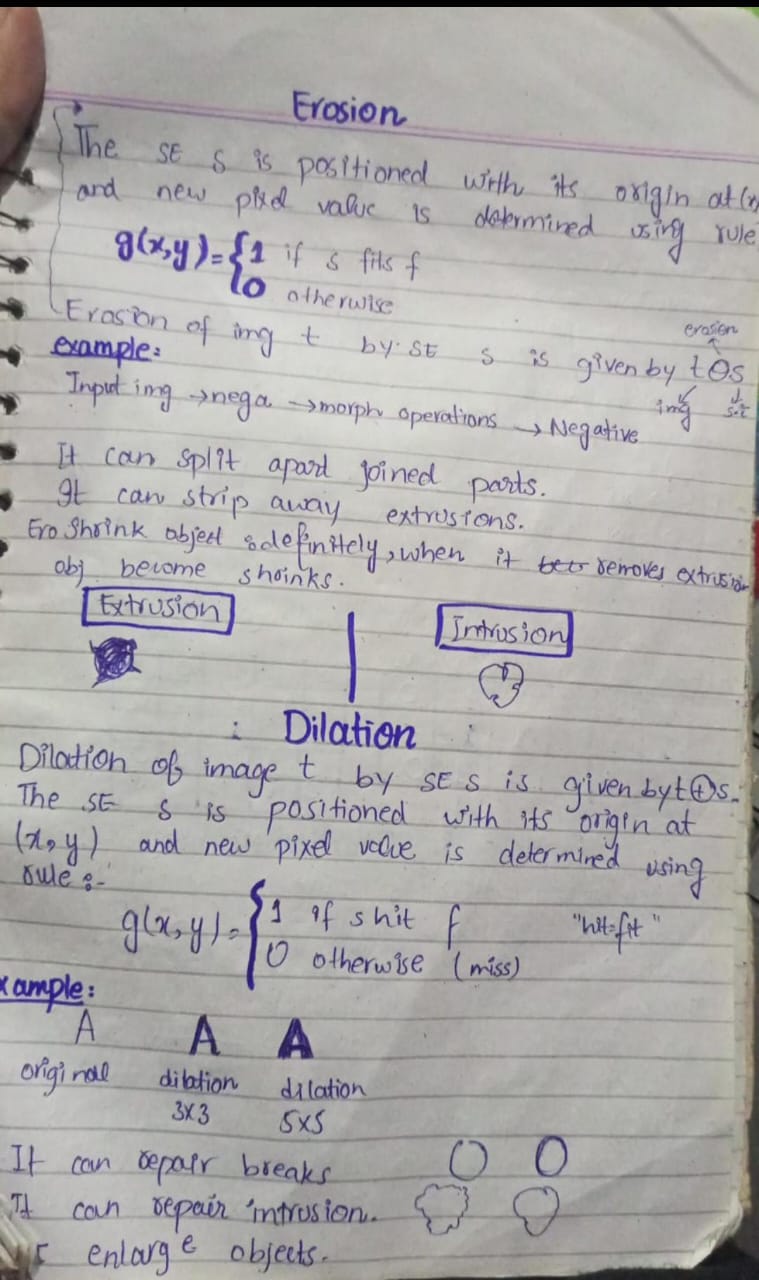 Erosion
The SE S is positioned with its origin at (x,
and new pixel value is determined using rule
g(x,y)={1 if s fits f
0 otherwise
erosion
Erosion of img t by SE s is given by t⊖s
example:
img
Input img →nega →morph operations → Negative
It can split apart joined parts.
It can strip away extrusions.
Ero Shrink object definitely, when it removes extrusion
obj become shrinks.
Extrusion
Intrusion
: Dilation :
Dilation of image t by SE s is given by t⊕s.
The SE s is positioned with its origin at
(x,y) and new pixel value is determined using
rule:-
g(x,y)={1 if s hit f "hit=fit"
0 otherwise (miss)
xample:
A A A
original dilation dilation
3x3 5x5
It can repair breaks
It can repair intrusion.
enlarge objects.